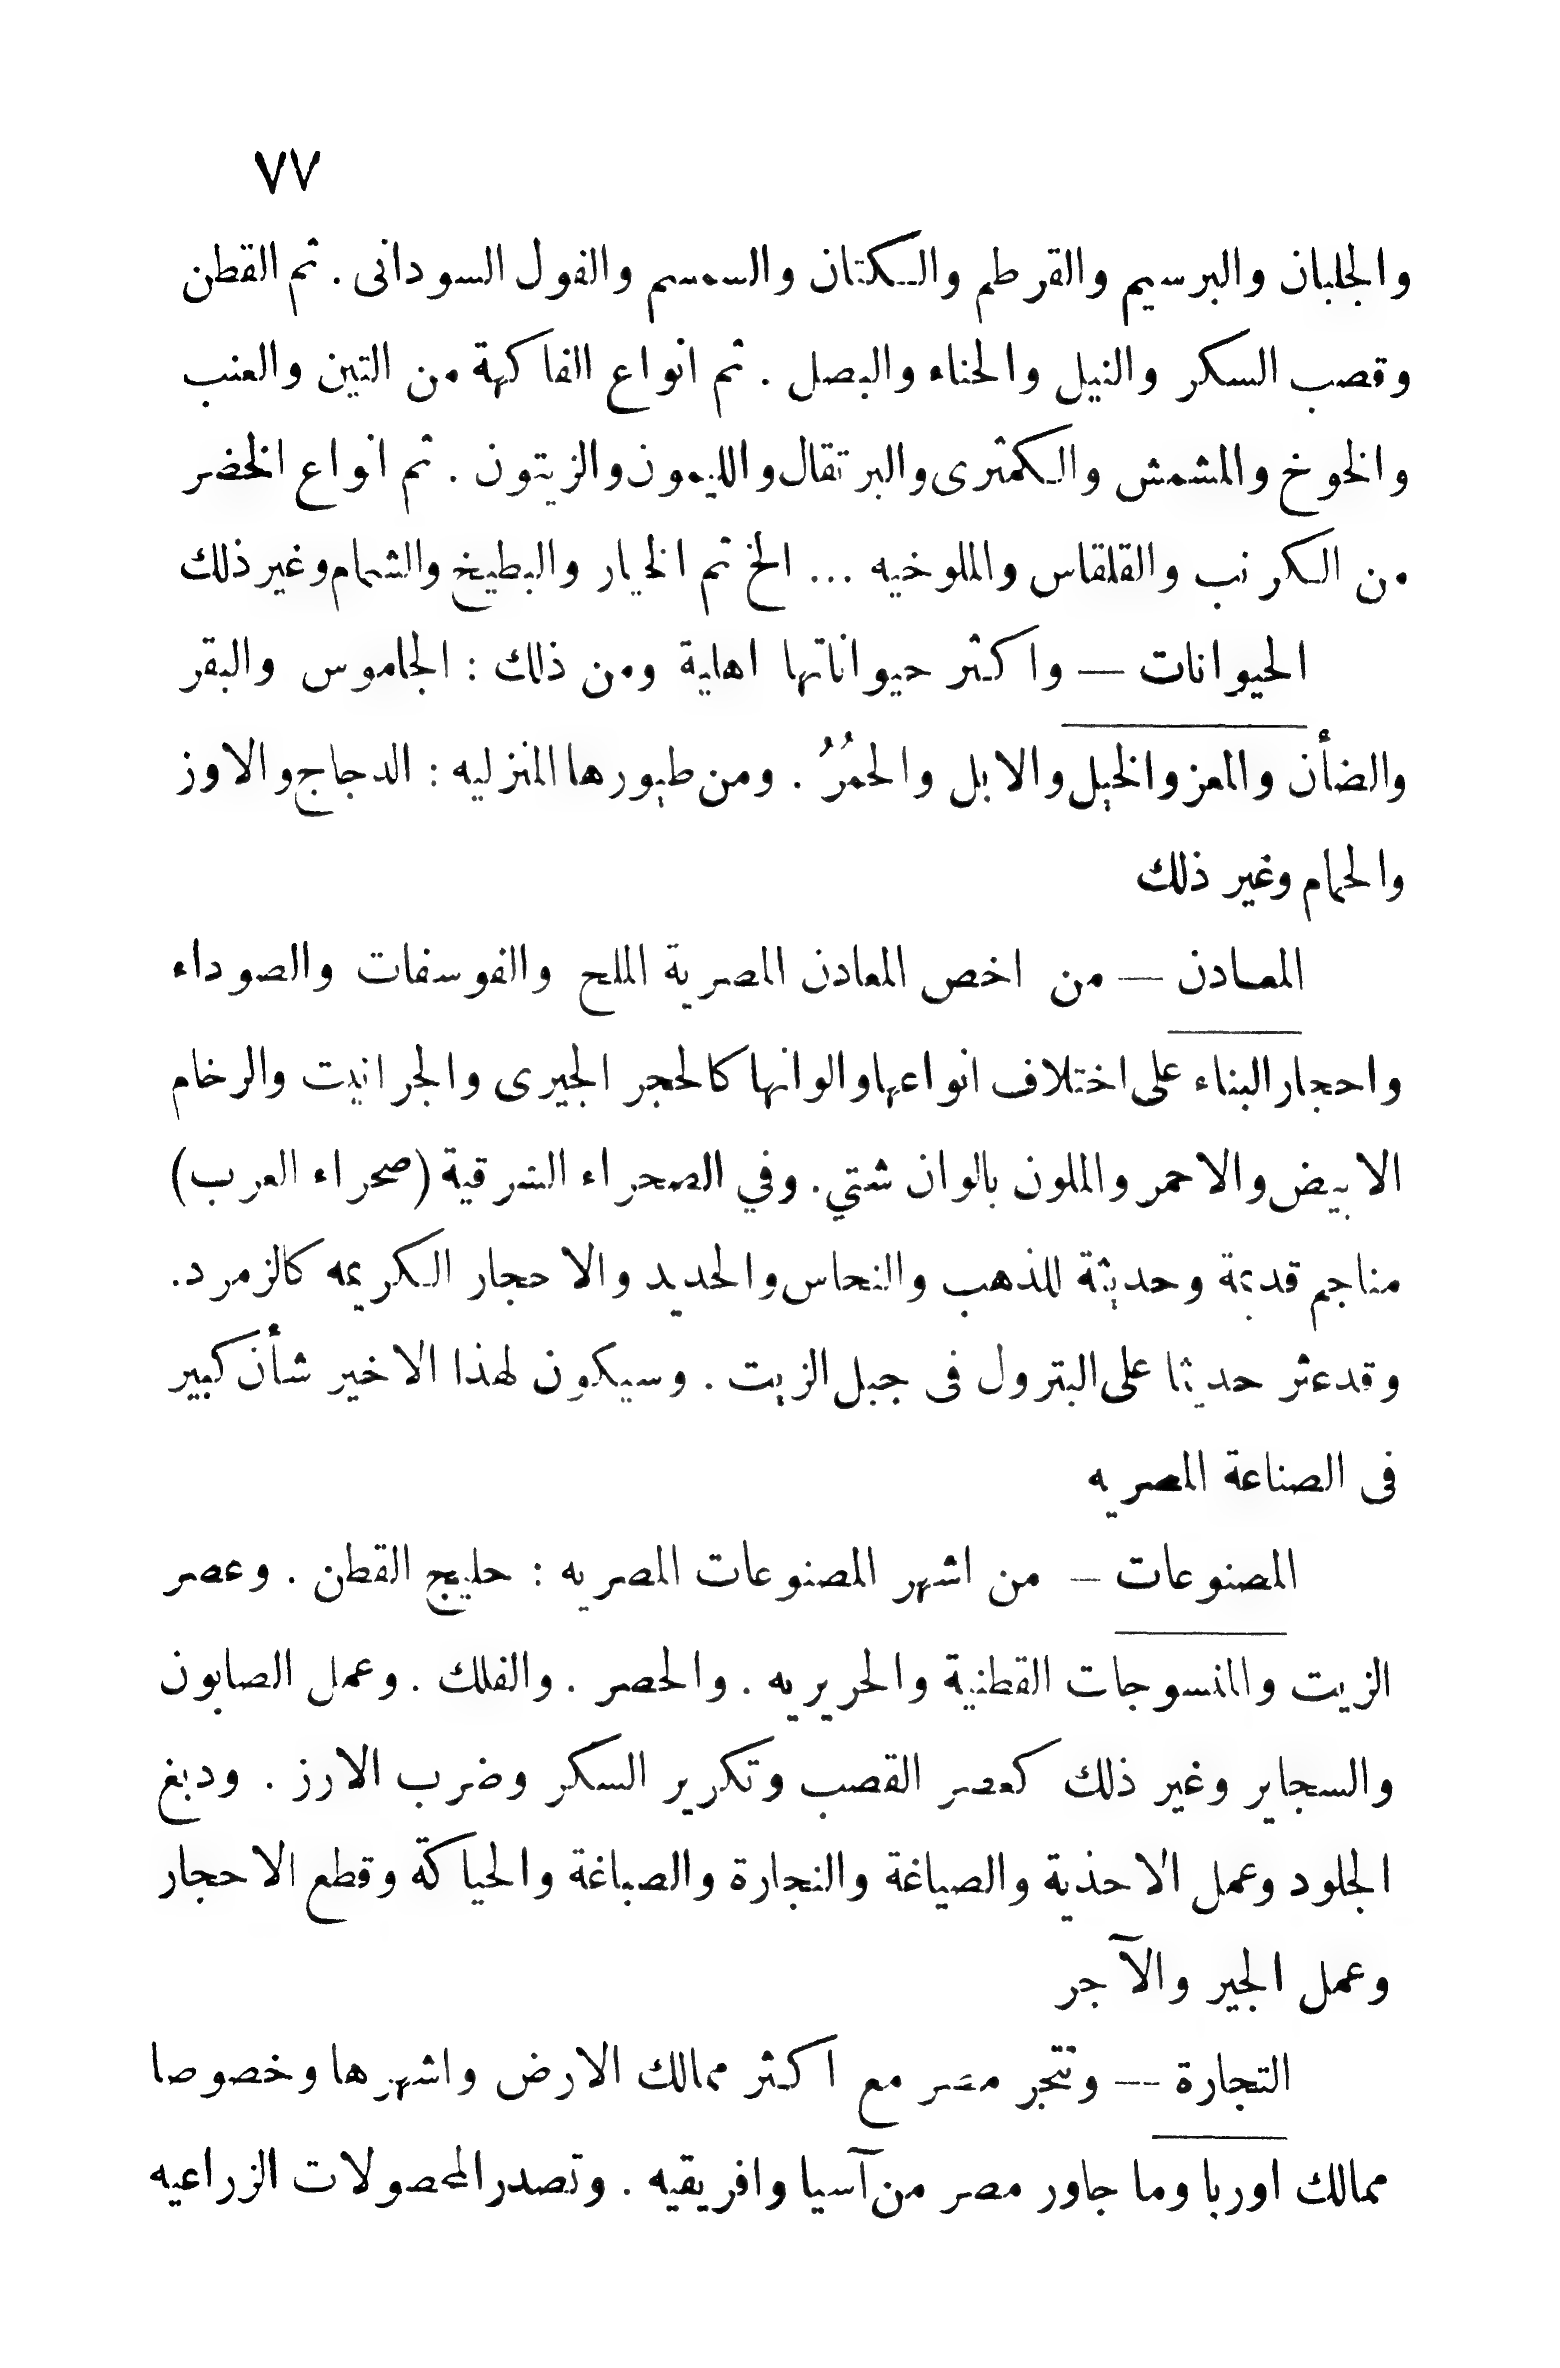 ٧٧
والجلبان والبرسيم والقرطم والكتان والسمسم والفول السودانى . ثم القطن
وقصب السكر والنيل والحناء والبصل . ثم انواع الفاكهة من التين والعنب
والخوخ والمشمش والكمثرى والبرتقال والليمون والزيتون . ثم انواع الخضر
من الكرنب والقلقاس والملوخيه ... الخ ثم الخيار والبطيخ والشمام وغير ذلك
الحيوانات — واكثر حيواناتها اهلية ومن ذلك : الجاموس والبقر
والضأن والمعز والخيل والابل والحمُرُ . ومن طيورها المنزليه : الدجاج والاوز
والحمام وغير ذلك
المعادن — من اخص المعادن المصرية الملح والفوسفات والصوداء
واحجار البناء على اختلاف انواعها والوانها كالحجر الجيرى والجرانيت والرخام
الابيض والاحمر والملون بالوان شتي . وفي الصحراء الشرقية (صحراء العرب)
مناجم قديمة وحديثة للذهب والنحاس والحديد والاحجار الكريمه كالزمرد .
وقد عثر حديثا على البترول فى جبل الزيت . وسيكون لهذا الاخير شأن كبير
فى الصناعة المصريه
المصنوعات — من اشهر المصنوعات المصريه : حليج القطن . وعصر
الزيت والمنسوجات القطنية والحريريه . والحصر . والفلك . وعمل الصابون
والسجاير وغير ذلك كعصر القصب وتكرير السكر وضرب الارز . ودبغ
الجلود وعمل الاحذية والصياغة والنجارة والصباغة والحياكة وقطع الاحجار
وعمل الجير والآجر
التجارة — وتتجر مصر مع اكثر ممالك الارض واشهرها وخصوصا
ممالك اوربا وما جاور مصر من آسيا وافريقيه . وتصدر المحصولات الزراعيه